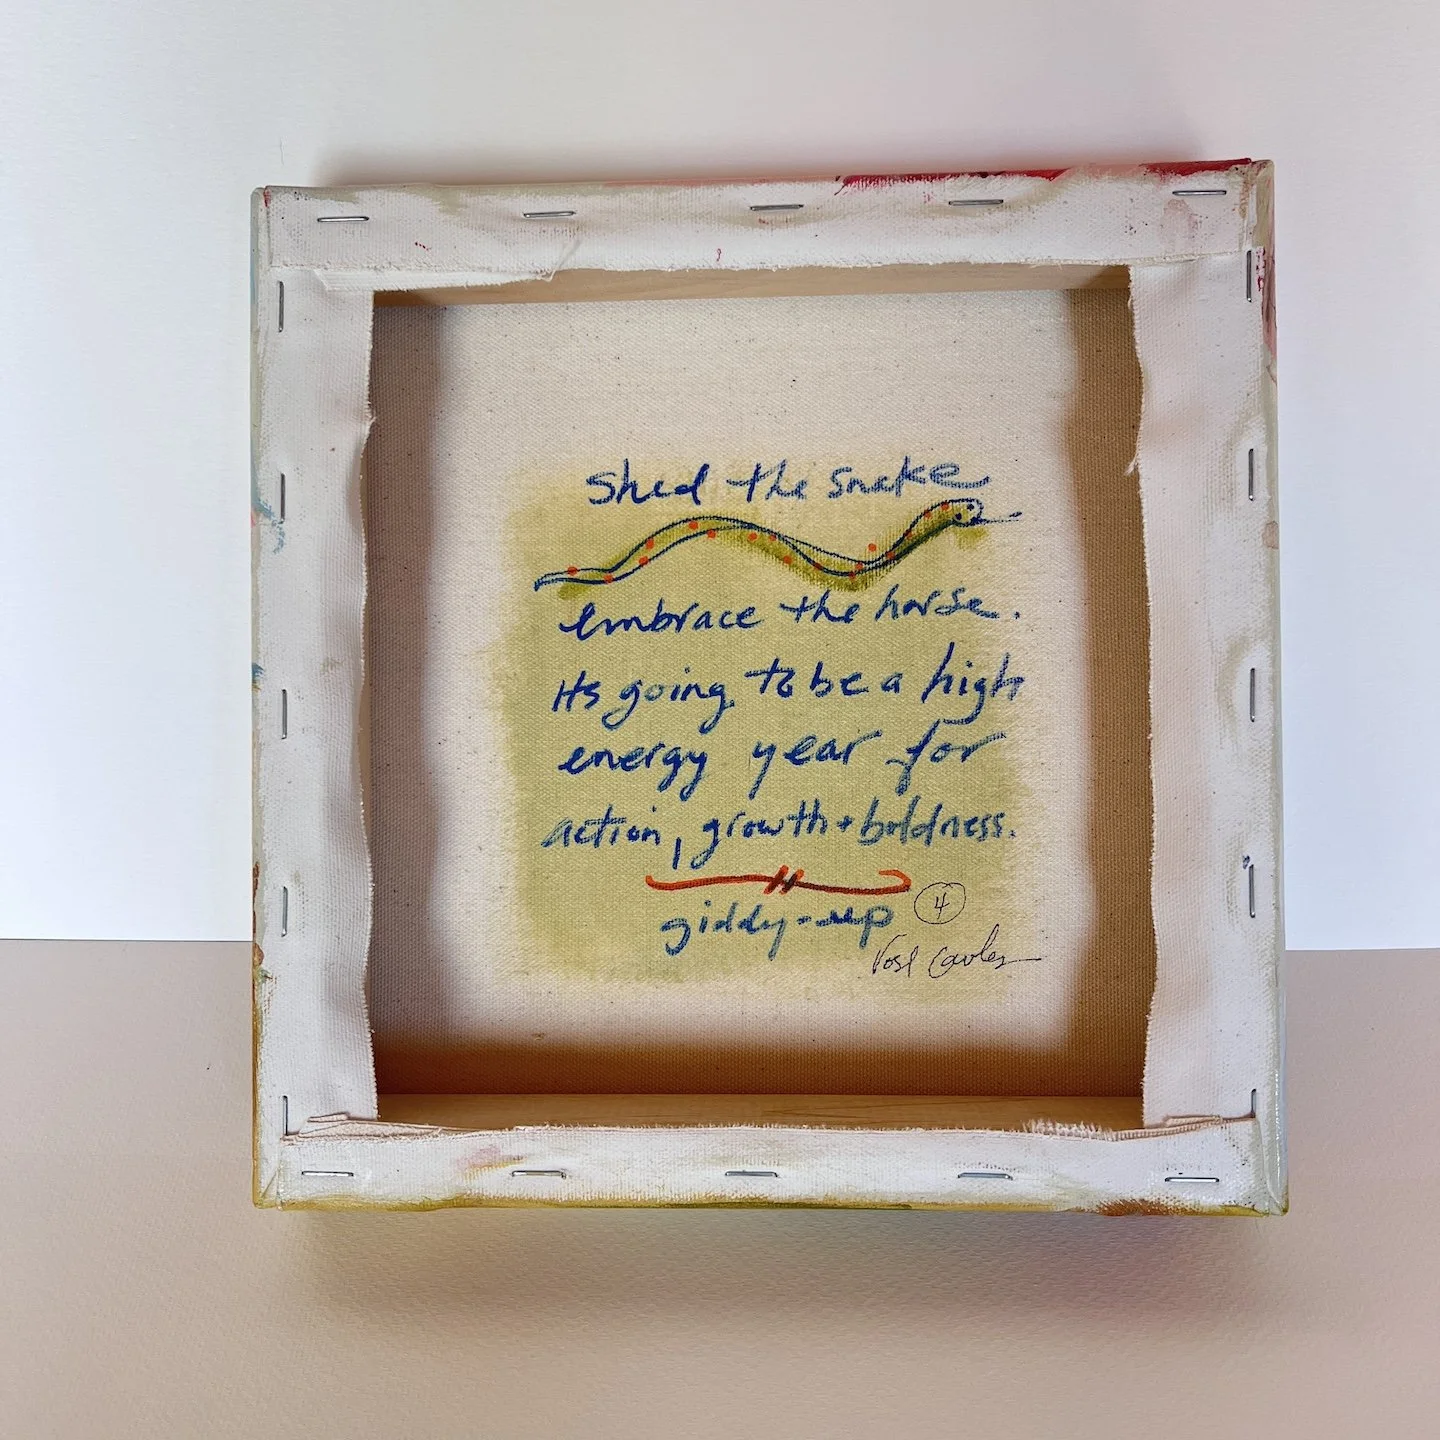 shed the snake
embrace the horse.
Its going to be a high
energy year for
action, growth + boldness.
giddy-up
4
Cowles